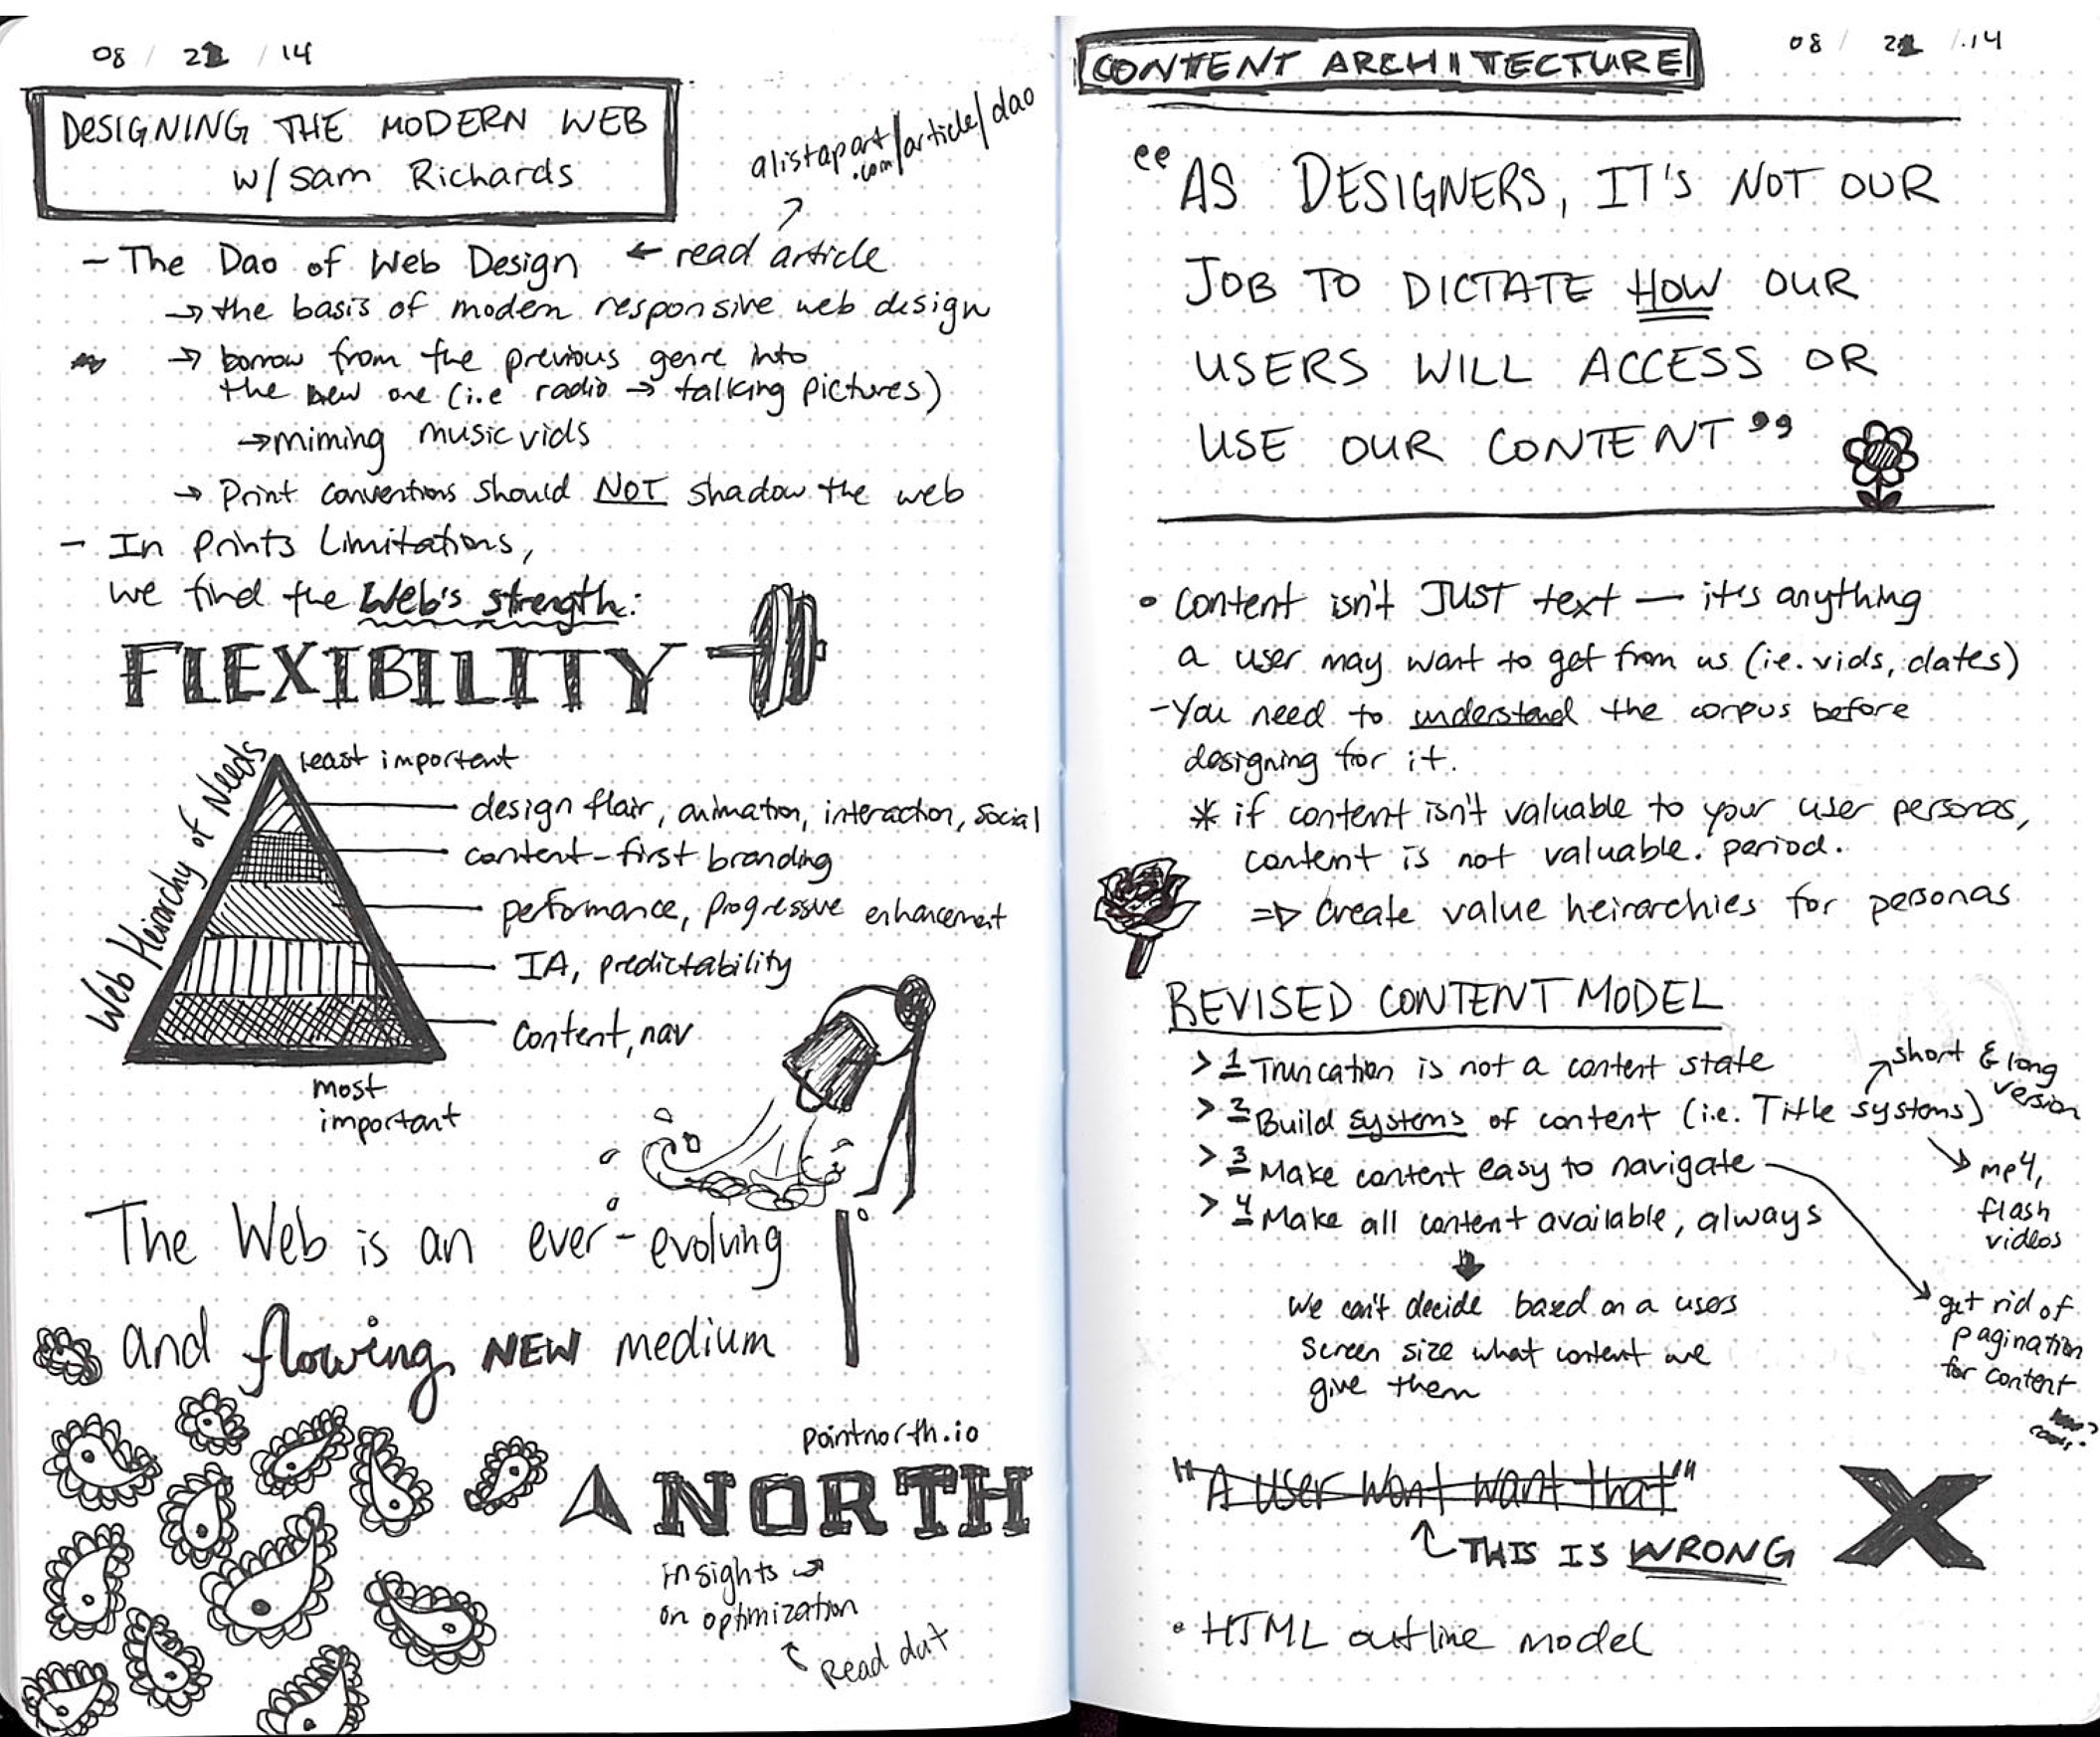 08 / 22 / 14
DESIGNING THE MODERN WEB
w/ Sam Richards
alistapart.com/article/dao
- The Dao of Web Design ← read article
→ the basis of modern responsive web design
→ borrow from the previous genre into
the new one (i.e radio → talking pictures)
→ miming music vids
→ Print conventions should NOT shadow the web
- In Prints Limitations,
we find the Web's strength:
FLEXIBILITY
Web Heirarchy of Needs
least important
design flair, animation, interaction, social
content-first branding
performance, progressive enhancement
IA, predictability
Content, nav
most
important
The Web is an ever-evolving
and flowing NEW medium
pointnorth.io
NORTH
insights →
on optimization
Read dat
CONTENT ARCHITECTURE
08 / 22 / 14
“AS DESIGNERS, IT'S NOT OUR
JOB TO DICTATE HOW OUR
USERS WILL ACCESS OR
USE OUR CONTENT”
• Content isn't JUST text — it's anything
a user may want to get from us (ie. vids, dates)
- You need to understand the corpus before
designing for it.
* if content isn't valuable to your user personas,
content is not valuable. period.
⇒ Create value heirarchies for personas
REVISED CONTENT MODEL
> 1 Truncation is not a content state
short & long
version
> 2 Build systems of content (i.e. Title systems)
> 3 Make content easy to navigate
mp4,
flash
videos
> 4 Make all content available, always
We can't decide based on a users
screen size what content we
give them
get rid of
pagination
for content
"A user won't want that"
THIS IS WRONG
• HTML outline model